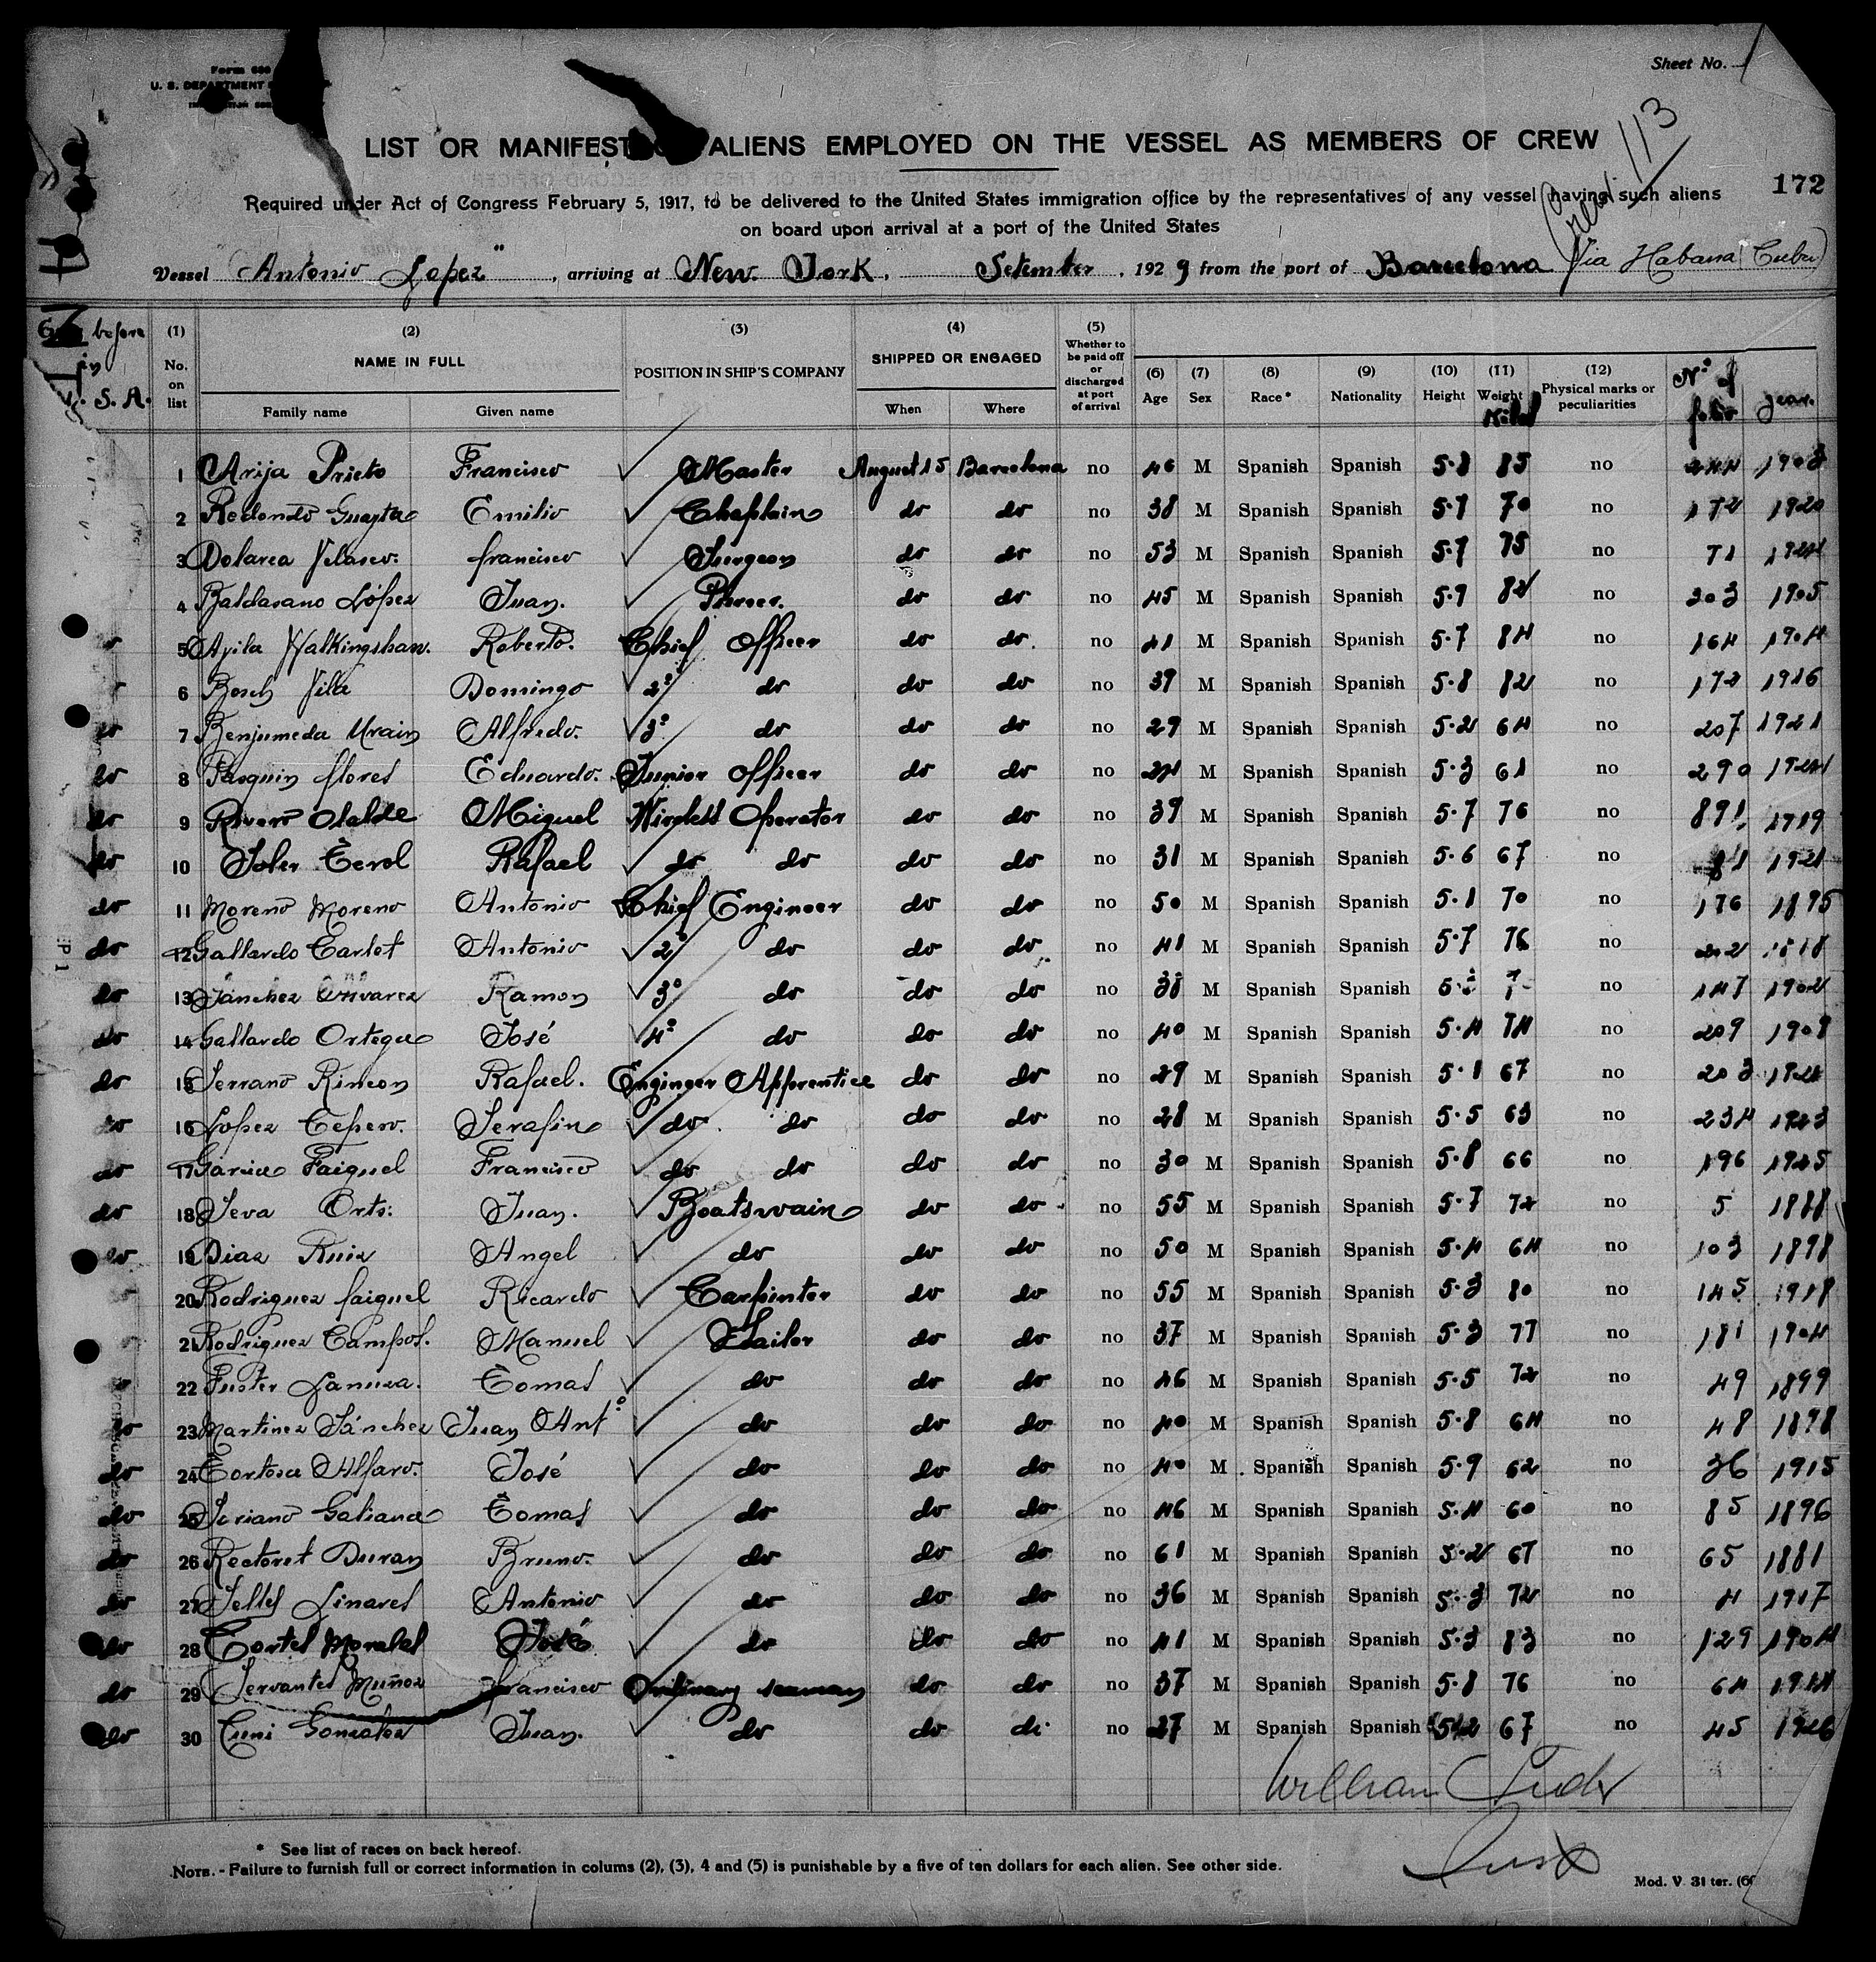 Sheet No. 1
Form 680
U. S. DEPARTMENT
LIST OR MANIFEST ALIENS EMPLOYED ON THE VESSEL AS MEMBERS OF CREW
113
172
Required under Act of Congress February 5, 1917, to be delivered to the United States immigration office by the representatives of any vessel having such aliens
on board upon arrival at a port of the United States
Vessel "Antonio Lopez", arriving at New York, Setember, 1929 from the port of Barcelona (Via Habana Cuba)
before in U. S. A.
(1) No. on list
(2) NAME IN FULL Family name Given name
(3) POSITION IN SHIP'S COMPANY
(4) SHIPPED OR ENGAGED When Where
(5) Whether to be paid off or discharged at port of arrival
(6) Age (7) Sex (8) Race* (9) Nationality (10) Height (11) Weight Kilos (12) Physical marks or peculiarities Nº of folio year.
1 Arija Prieto Francisco Master August 15 Barcelona no 46 M Spanish Spanish 5.8 85 no 244
2 Redondo Emilio Chaplain do do no 38 M Spanish Spanish 5.7 70 no 172 1920
3 Dolarea Velasco. francisco Surgeon do do no 53 M Spanish Spanish 5.7 75 no 71 1924
4 Baldasano López Juan. Purcer. do do no 45 M Spanish Spanish 5.9 82 no 203 1905
5 Avila Walkingshaw. Roberto. Chief Officer do do. no 41 M Spanish Spanish 5.7 84 no 164 1904
6 Bosch Vila Domingo 2º do do do no 39 M Spanish Spanish 5.8 82 no 172 1916
do 7 Benjumeda Alfredo. 3º do do do no 29 M Spanish Spanish 5.2 64 no 207 1921
do 8 Pasquin flores Eduardo. Junior officer do do no 24 M Spanish Spanish 5.3 61 no 290 1924
do 9 Rivero Olalde Miguel Wireless Operator do do no 39 M Spanish Spanish 5.7 76 no 891 1919
do 10 Soler Terol Rafael do do do do no 31 M Spanish Spanish 5.6 67 no 81 1921
do 11 Moreno Moreno Antonio Chief Engineer do do no 50 M Spanish Spanish 5.1 70 no 176 1895
do 12 Gallardo Carlot Antonio 2º do do do no 41 M Spanish Spanish 5.7 76 no
do 13 Sánchez Ramon 3º do do do no 38 M Spanish Spanish no 147 1902
do 14 Gallardo Ortega José 4º do do do no 40 M Spanish Spanish 5.4 74 no 209 1908
do 15 Serrano Rincon Rafael. Enginger Apprentice do do no 29 M Spanish Spanish 5.1 67 no 203
do 16 Lopez Cepero. Serafin do do do do no 28 M Spanish Spanish 5.5 63 no 234 1923
do 17 Garcia Faiguel Francisco do do do do no 30 M Spanish Spanish 5.8 66 no 196 1925
do 18 Seva Orts. Juan. Boatswain do do no 55 M Spanish Spanish 5.7 72 no 5 1888
do 19 Diaz Ruiz Angel do do do no 50 M Spanish Spanish 5.4 64 no 103 1898
do 20 Rodriguez faiguel Ricardo Carpinter do do no 55 M Spanish Spanish 5.3 80 no 145 1918
do 21 Rodriguez Campos. Manuel Sailor do do no 37 M Spanish Spanish 5.3 77 no 181 1904
22 Fuster Lanuza. Tomas do do do no 46 M Spanish Spanish 5.5 72 no 49 1899
do 23 Martinez Sánchez Juan Antº do do do no 40 M Spanish Spanish 5.8 64 no 48 1898
do 24 Tortosa Alfaro. José do do do no 40 M Spanish Spanish 5.9 62 no 36 1915
do 25 Soriano Galiana Tomas do do do no 46 M Spanish Spanish 5.4 60 no 85 1896
do 26 Rectoret Duran Bruno. do do do no 61 M Spanish Spanish 5.2 67 no 65 1881
do 27 Selles Linares Antonio do do do no 36 M Spanish Spanish 5.3 72 no 4 1917
do 28 Cortes Morales José do do do no 41 M Spanish Spanish 5.3 83 no 129 1904
do 29 Servantes Muñoz francisco Ordinary seaman do do no 37 M Spanish Spanish 5.8 76 no 64 1914
do 30 Cuni Gonzalez Juan. do do do no 27 M Spanish Spanish 5.2 67 no 45 1926
William
* See list of races on back hereof.
NOTE. - Failure to furnish full or correct information in colums (2), (3), 4 and (5) is punishable by a five of ten dollars for each alien. See other side.
Mod. V. 31 ter. (60